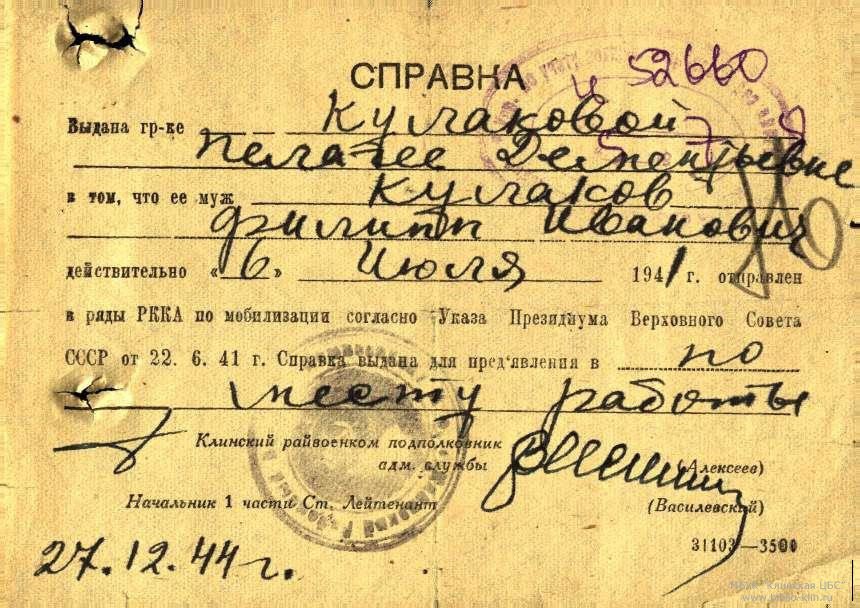 СПРАВКА
и 52660
Выдана гр-ке Кулаковой
Пелагее Дементьевне
в том, что ее муж Кулаков
Филипп Иванович
действительно «6» Июля 1941 г. отправлен
в ряды РККА по мобилизации согласно Указа Президиума Верховного Совета
СССР от 22. 6. 41 г. Справка выдана для пред'явления в по
месту работы
Клинский райвоенком подполковник
адм. службы (Алексеев)
Начальник 1 части Ст. Лейтенант (Василевский)
27.12.44 г.
31103—3500
МБУК "Клинская ЦБС"
www.biblio-klin.ru